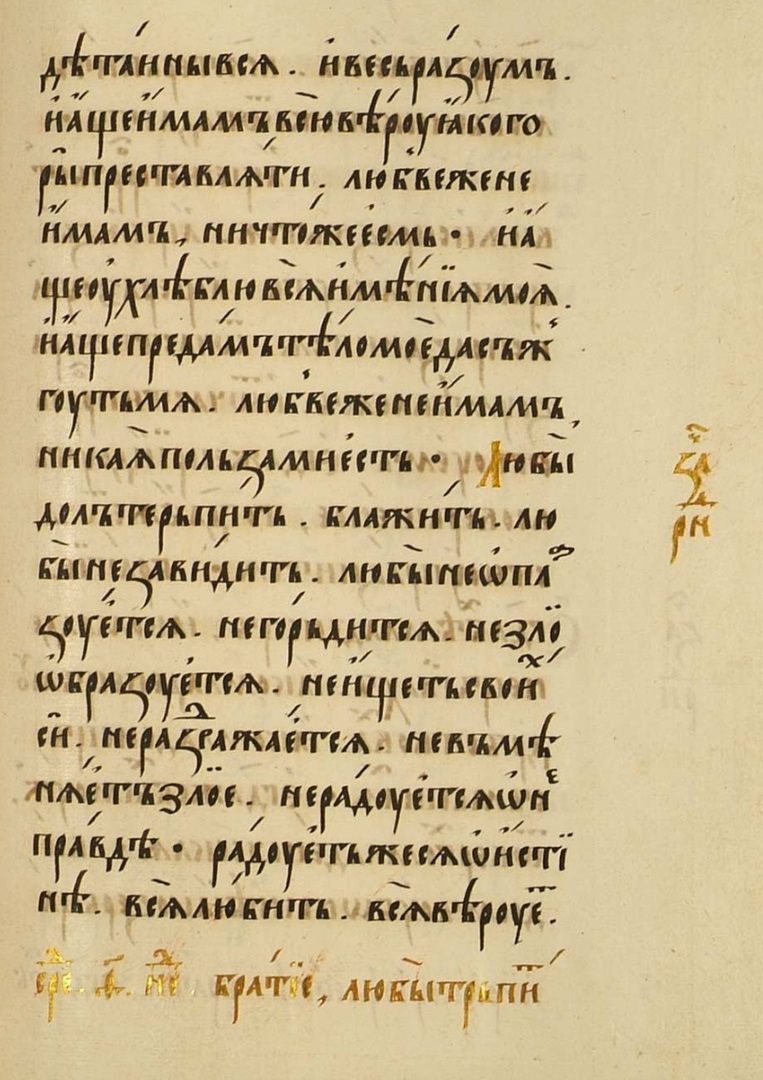 дѣта́ины вся̀. и҆ весь ра́зоумъ.
и҆ а҆́ще и҆́мамъ всю̀ вѣ́роу ꙗ҆́ко го
ры̑ преставлѧ́ти. любвѐ же не
и҆́мамъ, ничто́же е҆́смь · и҆ а҆́
ще оу҆хлѣ́блю всѧ̀ и҆мѣ́нїѧ моѧ̀.
и҆ а҆́ще преда́мъ тѣ́ло моѐ да съж
гоу́ть мѧ. любвѐ же не и҆́мамъ,
никаѧ̀ польза мнѐ є҆сть · Любы̀
долътерьпи́ть. блажи́ть. лю
бы̀ не зави́дить. любы̀ не ѡпл
зоуе́тсѧ. не го́рьдитсѧ. не ѕло̀
ѡ҆бразоуе́тсѧ. не и҆́щеть свои́ⷯ
сѝ. не раздража́етсѧ. не въмѣ
нѧ́еть ѕло́е. не ра́доуетсѧ ѡ҆ нⷷ
пра́вдѣ · ра́доуеть же сѧ ѡ҆ и҆́сти
нѣ. всѧ̀ лю́бить. всѧ̀ вѣ́роуеⷮ.
бра́тїе, любы̀ трьпиⷮ
за
ри